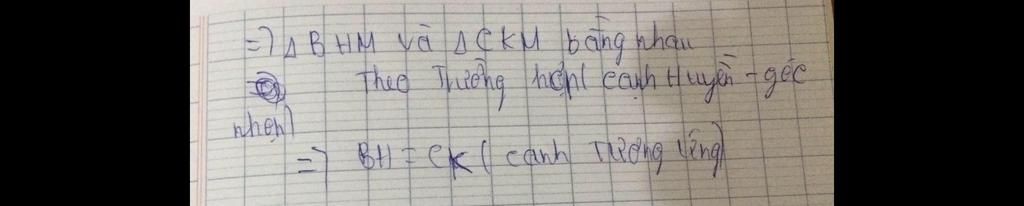 => Δ BHM và Δ CKM bằng nhau
Theo Trường hợp cạnh Huyền - góc
nhọn
=> BH = CK ( cạnh Tương Ứng)